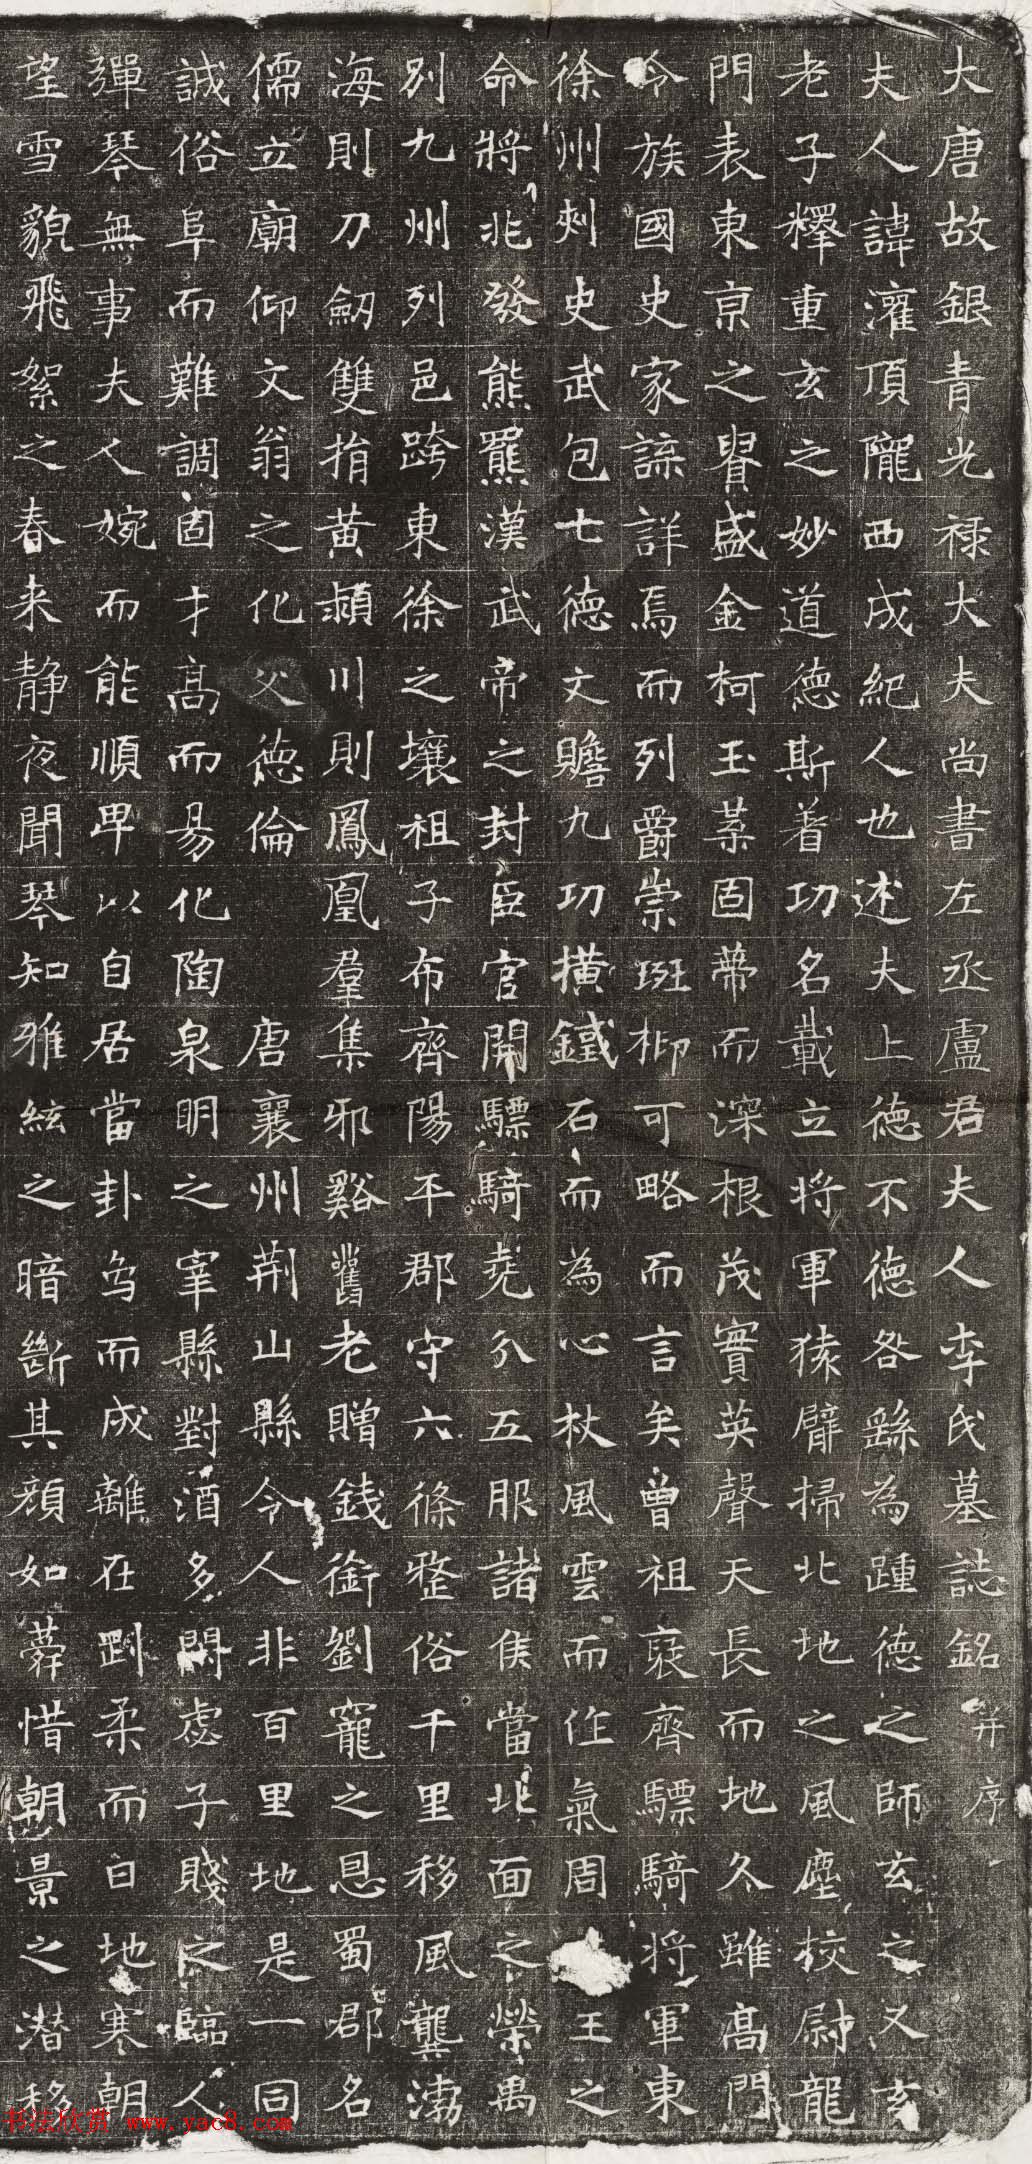 大唐故銀青光祿大夫尚書左丞盧君夫人李氏墓誌銘并序
夫人諱灌頂隴西成紀人也述夫上德不德各繇為踵德之師玄之又玄
老子釋重玄之妙道德斯著功名載立將軍猿臂掃北地之風塵校尉龍
門表東京之賢盛金柯玉葉固蒂而深根茂實英聲天長而地久雖高門
令族國史家諜詳焉而列爵崇班抑可略而言矣曾祖裒齊驃騎將軍東
徐州刺史武包七德文贍九功橫鐵石而為心杖風雲而作氣周王之
命將北發熊羆漢武帝之封臣官開驃騎堯分五服諸侯當北面之榮禹
別九州列邑跨東徐之壤祖子布齊陽平郡守六條整俗千里移風龔渤
海則刀劒雙捐黃潁川則鳳凰羣集邪谿舊老贈錢銜劉寵之恩蜀郡名
儒立廟仰文翁之化父德倫唐襄州荊山縣令人非百里地是一同
誠俗阜而難調固才高而易化陶泉明之宰縣對酒多閑虙子賤之臨人
彈琴無事夫人婉而能順卑以自居當卦刍而成離在剛柔而曰地寒朝
望雪貌飛絮之春来静夜聞琴知雅絃之暗斷其顏如蕣惜朝景之潛移
书法欣赏 www.yac8.com